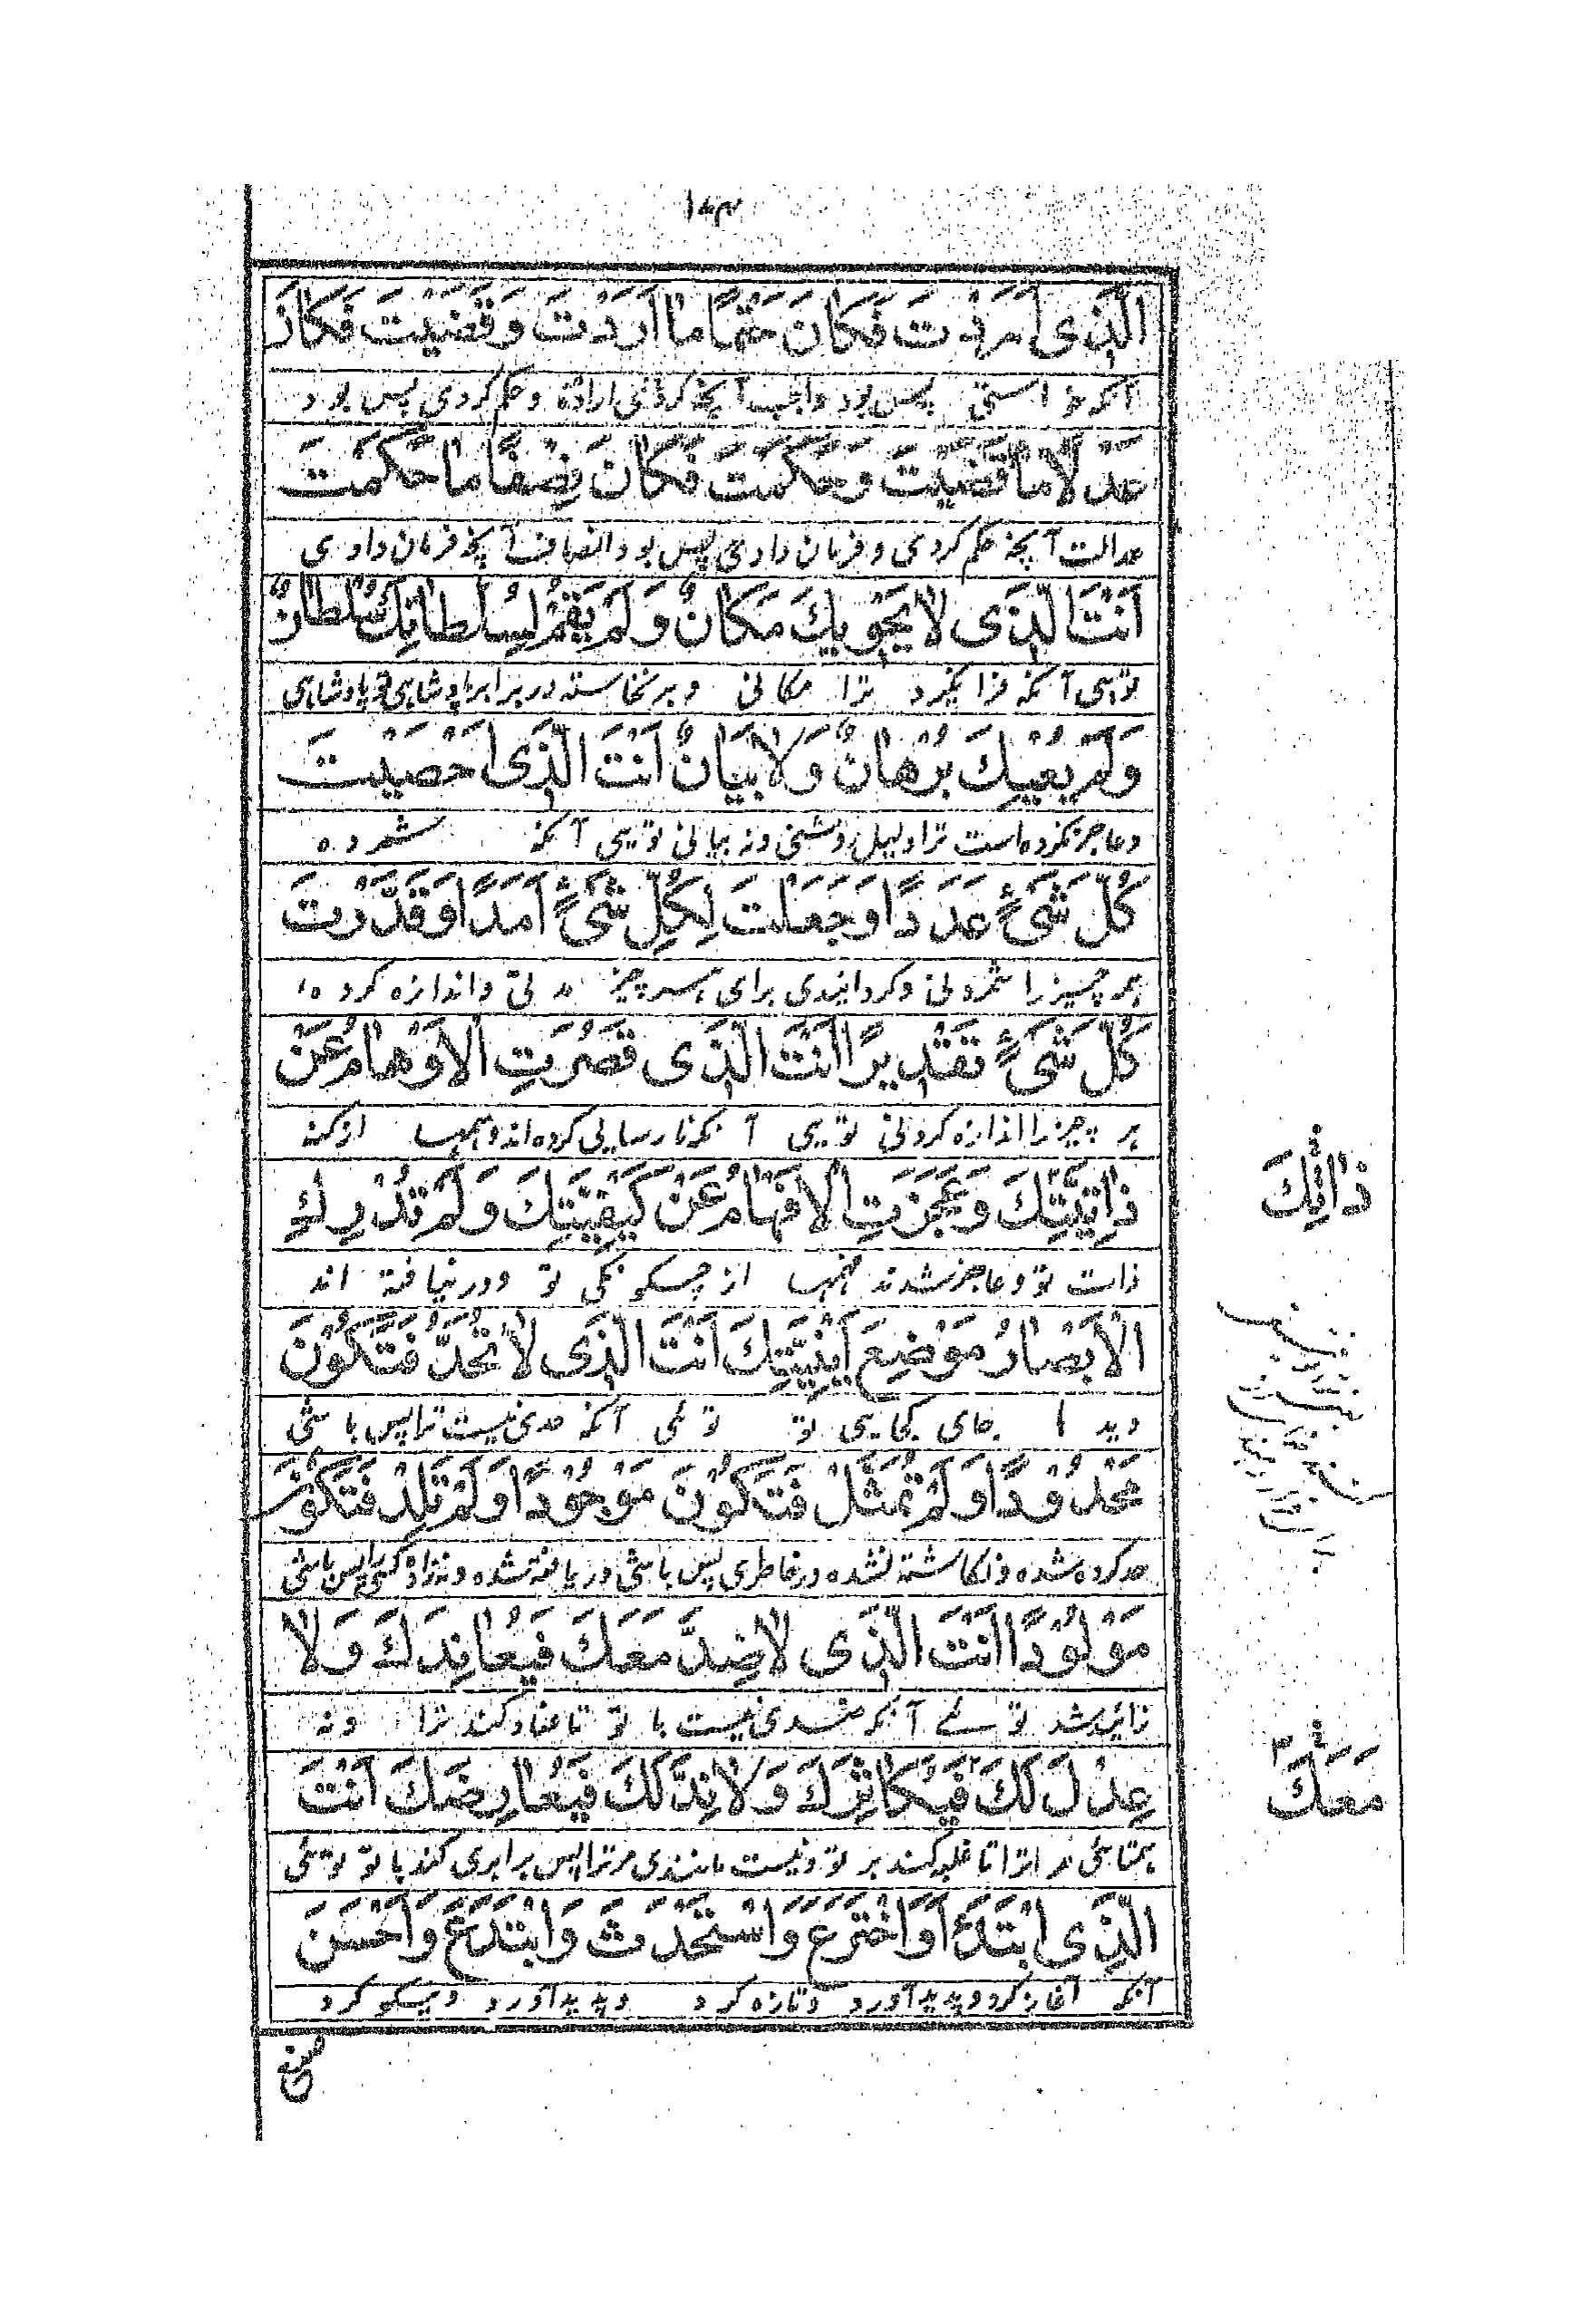 ۱۸۳
الَّذَى اَمَرْدْتَ فَكَانَ حَتْمًا مَا اَرَدْتَ وَقَضَيْتَ فَكَانَ
آنکه خواستی پس بود واجب آنچه کردی اراده و حکم کردی پس بود
عَدْلًا مَا قَضَيْتَ وَحَكَمْتَ فَكَانَ نِصْفًا مَا حَكَمْتَ
عدالت آنچه حکم کردی و فرمان دادی پس بود انصاف آنچه فرمان دادی
اَنْتَ الَّذَى لَا يَحْوِيكَ مَكَانٌ وَلَمْ يَقُمْ لِسُلْطَانِكَ سُلْطَانٌ
تویی آنکه فرا نگیرد ترا مکانی و برنخاسته در برابر پادشاهی تو پادشاهی
وَلَمْ يُعْيِكَ بُرْهَانٌ وَلَا بَيَانٌ اَنْتَ الَّذَى اَحْصَيْتَ
و عاجز نکرده است ترا دلیل روشنی و نه بیانی تویی آنکه شمرده
كُلَّ شَىْءٍ عَدَدًا وَجَعَلْتَ لِكُلِّ شَىْءٍ اَمَدًا وَقَدَّرْتَ
همه چیز را شمردنی و گردانیدی برای هر چیز مدتی و اندازه کرده
كُلَّ شَىْءٍ تَقْدِيرًا اَنْتَ الَّذَى قَصُرَتِ الْاَوْهَامُ عَنْ
هر چیز را اندازه کردنی تویی آنکه نارسایی کرده اند وهمها از کنه
ذَاتِيَّتِكَ وَعَجَزَتِ الْاَفْهَامُ عَنْ كَيْفِيَّتِكَ وَلَمْ تُدْرِكِ
ذات تو و عاجز شدند فهمها از چگونگی تو و در نیافته اند
الْاَبْصَارُ مَوْضِعَ اَيْنِيَّتِكَ اَنْتَ الَّذَى لَا تُحَدُّ فَتَكُوْنَ
دیدها جای کجایی تو توئی آنکه حدی نیست ترا پس باشی
مَحْدُوْدًا وَلَمْ تُمَثَّلْ فَتَكُوْنَ مَوْجُوْدًا وَلَمْ تَلِدْ فَتَكُوْنَ
حد کرده شده و نگاشته نشده در خاطری پس باشی دریافته شده و نزاد کسی پس باشی
مَوْلُوْدًا اَنْتَ الَّذَى لَا ضِدَّ مَعَكَ فَيُعَانِدَكَ وَلَا
زائیده شد توئی آنکه ضدی نیست با تو تا عناد کند ترا و نه
عِدْلَ لَكَ فَيُكَاثِرَكَ وَلَا نِدَّ لَكَ فَيُعَارِضَكَ اَنْتَ
همتائی مر ترا تا غلبه کند بر تو و نیست مانندی مر ترا پس برابری کند با تو توئی
الَّذِى ابْتَدَءَ وَاخْتَرَعَ وَاسْتَحْدَثَ وَابْتَدَعَ وَاَحْسَنَ
آنکه آغاز کرد و پدید آورد و تازه کرد و پدید آورد و نیکو کرد
صنع
ذَاتِكَ
مَعَكَ